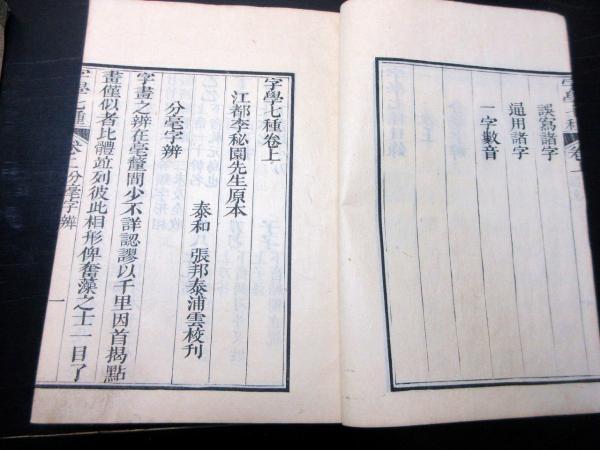 誤寫諸字
通用諸字
一字數音
字學七種
卷
字學七種卷上
江都李秘園先生原本
泰和 張邦泰浦雲校刊
分毫字辨
字畫之辨在毫釐間少不詳認謬以千里因首揭點
畫僅似者比體竝列彼此相形俾奮藻之士一目了
字學七種
卷上 分毫字辨
一